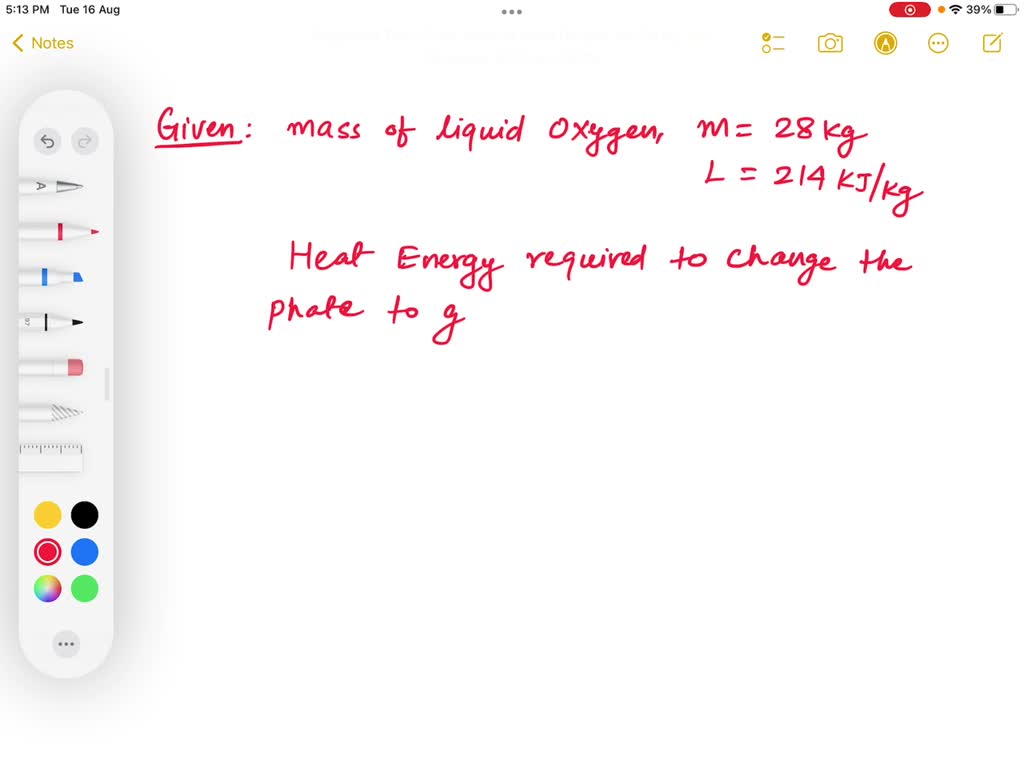 5:13 PM Tue 16 Aug
39%
Notes
Given: mass of liquid Oxygen, m = 28 kg
L = 214 KJ/kg
Heat Energy required to change the
phate to g
A
97